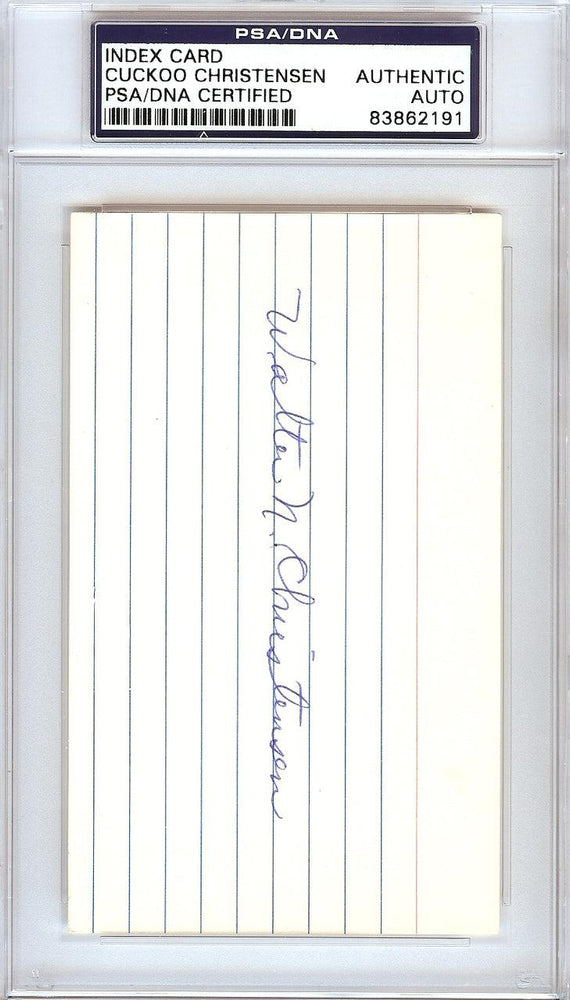 PSA/DNA
INDEX CARD
CUCKOO CHRISTENSEN AUTHENTIC
PSA/DNA CERTIFIED AUTO
83862191
Walter N. Christensen